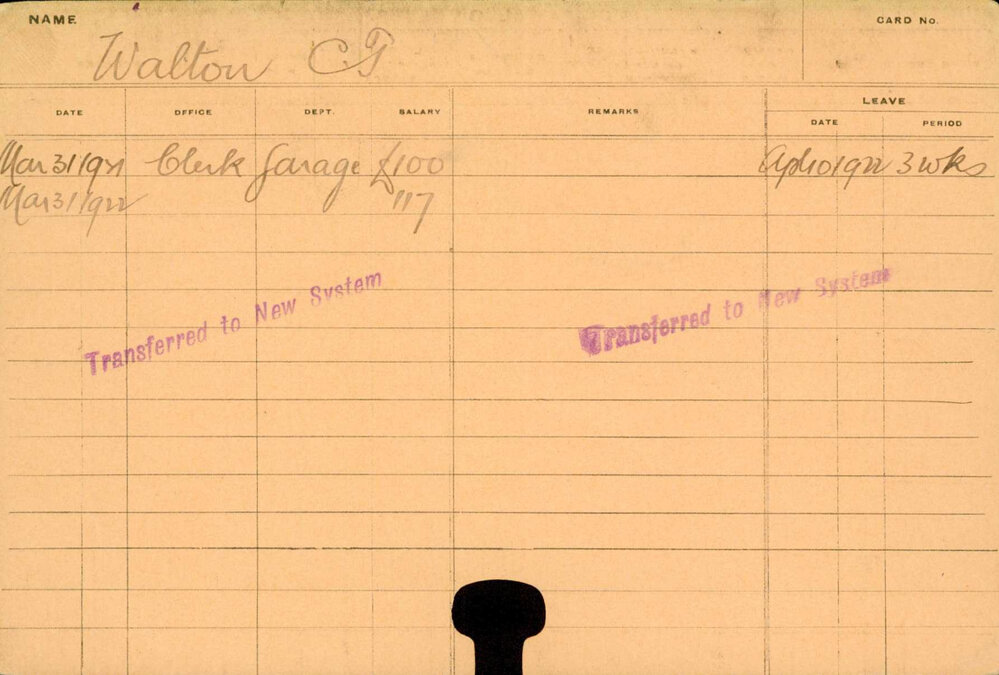 NAME CARD No.
Walton C F
LEAVE
DATE OFFICE DEPT. SALARY REMARKS DATE PERIOD
Mar 31 1921 Clerk Garage £100 Apl 10 1922 3 wks
Mar 31 1922 117
Transferred to New System Transferred to New System